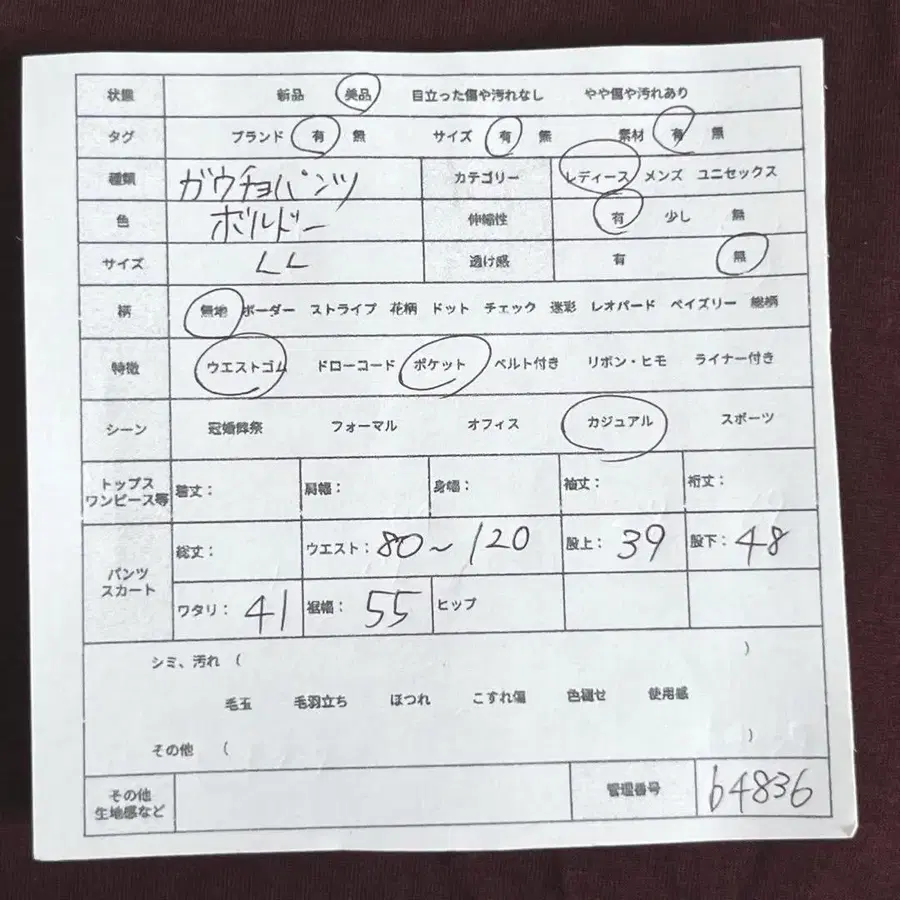 状態 新品 美品 目立った傷や汚れなし やや傷や汚れあり
タグ ブランド 有 無 サイズ 有 無 素材 有 無
種類 ガウチョパンツ カテゴリー レディース メンズ ユニセックス
色 ボルドー 伸縮性 有 少し 無
サイズ LL 透け感 有 無
柄 無地 ボーダー ストライプ 花柄 ドット チェック 迷彩 レオパード ペイズリー 総柄
特徴 ウエストゴム ドローコード ポケット ベルト付き リボン・ヒモ ライナー付き
シーン 冠婚葬祭 フォーマル オフィス カジュアル スポーツ
トップス
ワンピース等 着丈: 肩幅: 身幅: 袖丈: 裄丈:
パンツ
スカート 総丈: ウエスト: 80~120 股上: 39 股下: 48
ワタリ: 41 裾幅: 55 ヒップ
シミ、汚れ ( )
毛玉 毛羽立ち ほつれ こすれ傷 色褪せ 使用感
その他 ( )
その他
生地感など 管理番号 64836